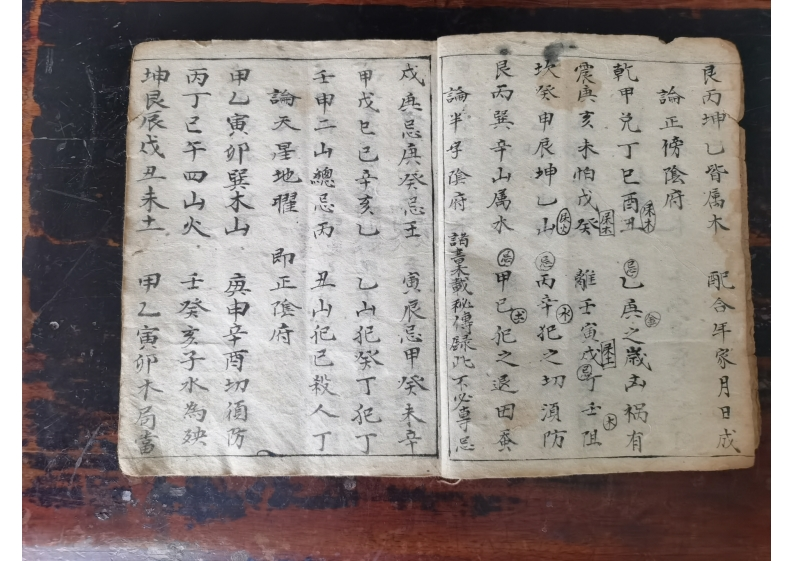 艮丙坤乙皆属木 配合年家月日成
論正傍陰府
乾甲兑丁巳酉丑 乙庚之歲出禍有
震庚亥未怕戊癸 離壬寅戌丁壬阻
坎癸申辰坤乙山 丙辛犯之切須防
艮丙巽辛山属水 甲己犯之退田蚕
論半字陰府 諸書未載秘傳録此不必專忌
戍庚忌庚癸忌壬 寅辰忌甲癸未辛
甲戊巳己辛亥乙 乙山犯癸丁犯丁
壬申二山總忌丙 丑山犯巳殺人丁
論天星地曜 即正陰府
甲乙寅卯巽木山 庚申辛酉切須防
丙丁巳午四山火 壬癸亥子水為殃
坤艮辰戊丑未土 甲乙寅卯木局當